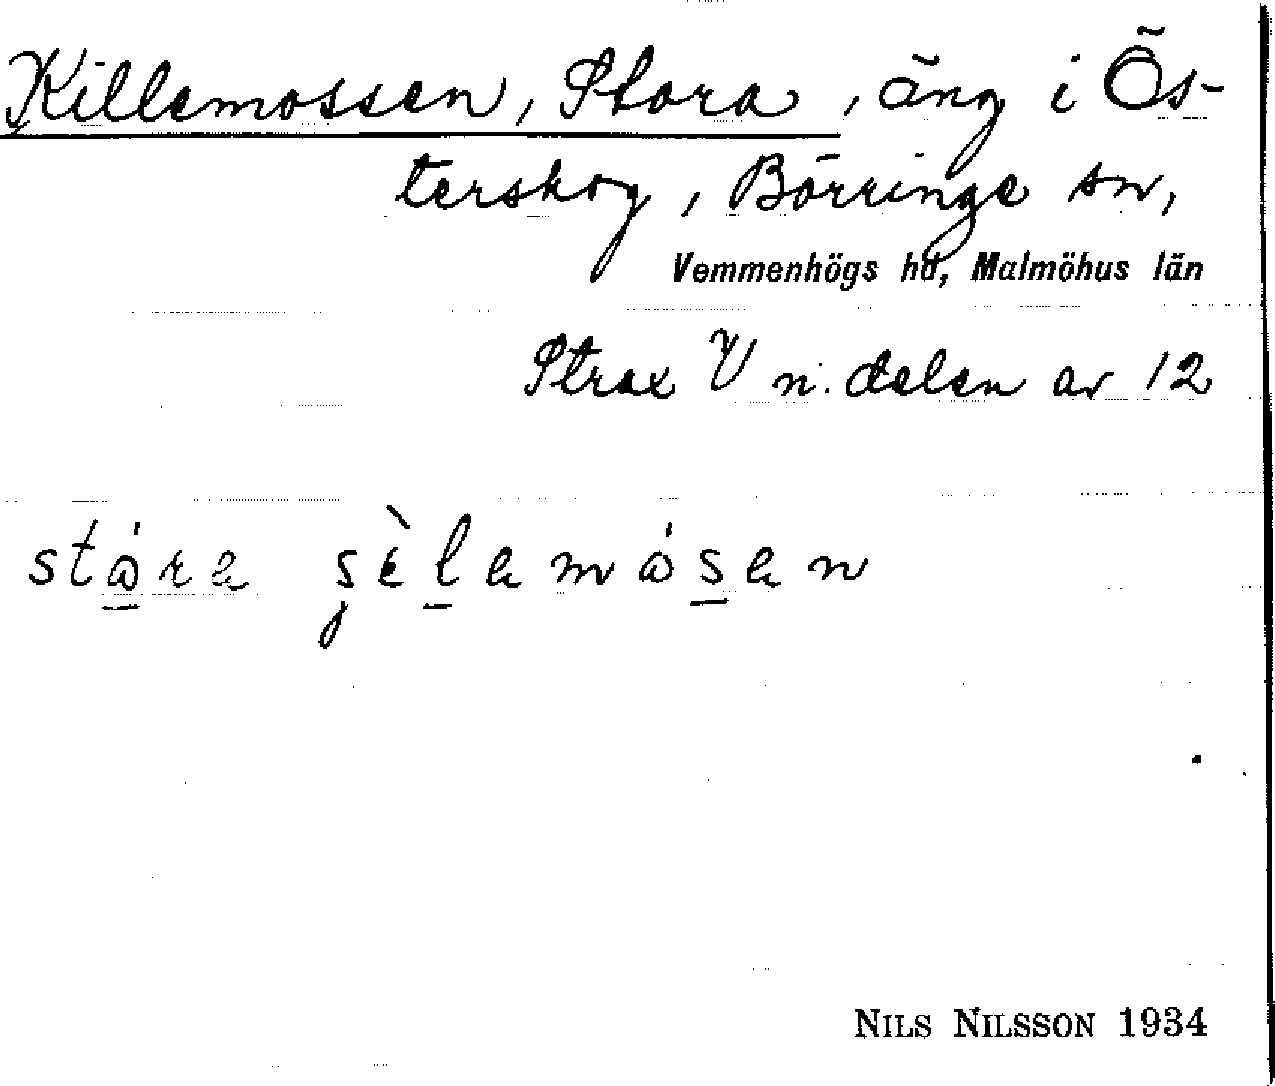 Killemossen, Stora, äng i Ös-
terskog, Börringe sn,
Vemmenhögs hd, Malmöhus län
Strax V n. delen av 12
NILS NILSSON 1934